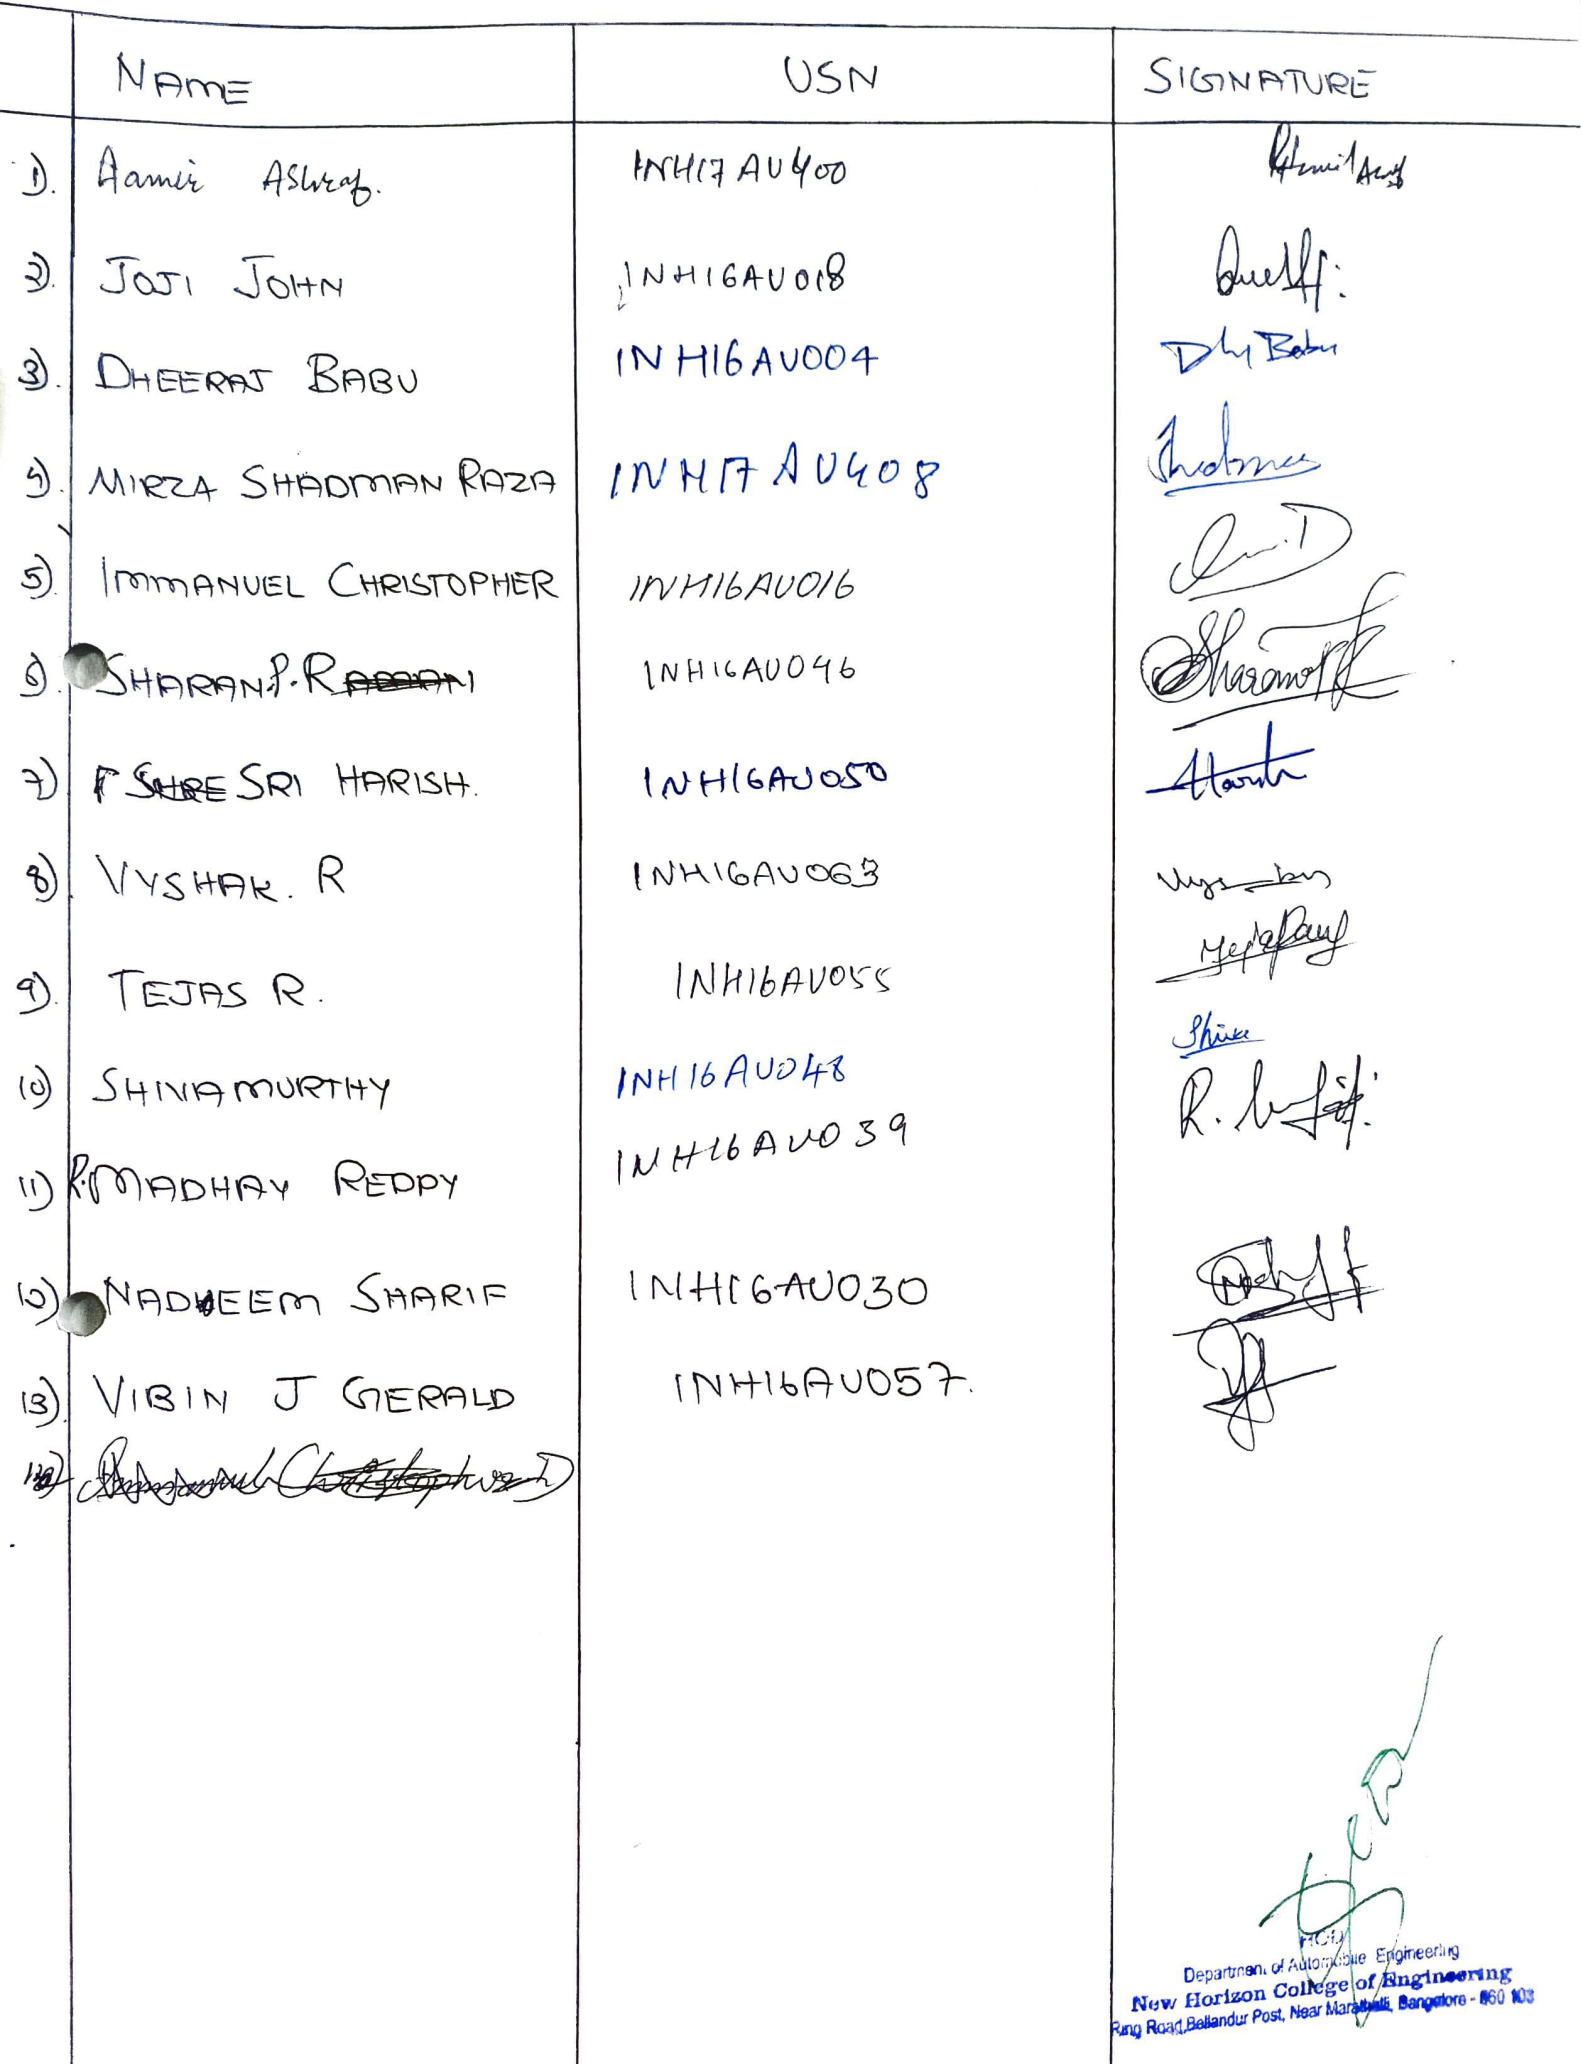 NAME USN SIGNATURE
1). Aamir Ashraf. 1NH17AU400
2). JOJI JOHN 1NH16AU018
3). DHEERAJ BABU 1NH16AU004 Babu
4). MIRZA SHADMAN RAZA 1NH17AU408
5). IMMANUEL CHRISTOPHER 1NH16AU016
6). SHARAN.P.R 1NH16AU046
7) SRI HARISH. 1NH16AU050
8) VYSHAK. R 1NH16AU063
9). TEJAS R. 1NH16AU055
10) SHIVAMURTHY 1NH16AU048
11) R.MADHAV REDDY 1NH16AU039
12) NADEEM SHARIF 1NH16AU030
13) VIBIN J GERALD 1NH16AU057.
HOD
Department of Automobile Engineering
New Horizon College of Engineering
Ring Road, Bellandur Post, Near Marathalli, Bangalore - 560 103